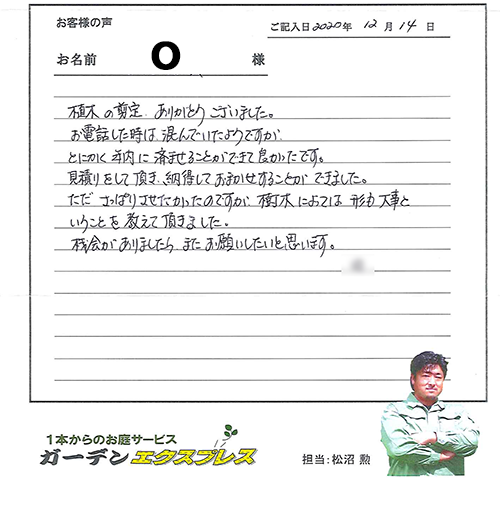 お客様の声
ご記入日2020年 12月 14日
お名前 O 様
植木の剪定、ありがとうございました。
お電話した時は混んでいたようですが、
とにかく年内に済ませることができて良かったです。
見積りをして頂き、納得しておまかせすることができました。
ただ さっぱりさせたかったのですが、樹木によっては 形も大事と
いうことを 教えて頂きました。
機会がありましたら、またお願いしたいと思います。
1本からのお庭サービス
ガーデンエクスプレス
担当:松沼 勲